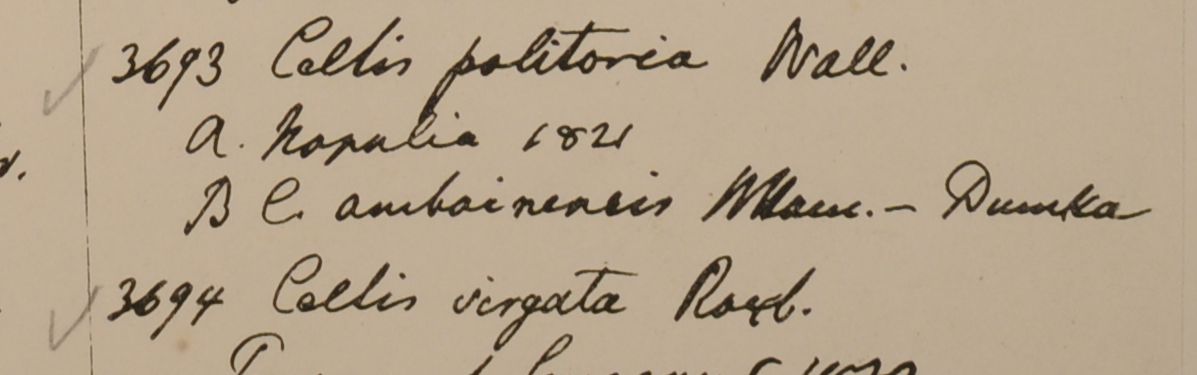 3693 Celtis politoria Wall.
A. Napalia 1821
B C. amboinensis Willd. - Dumka
3694 Celtis virgata Roxb.